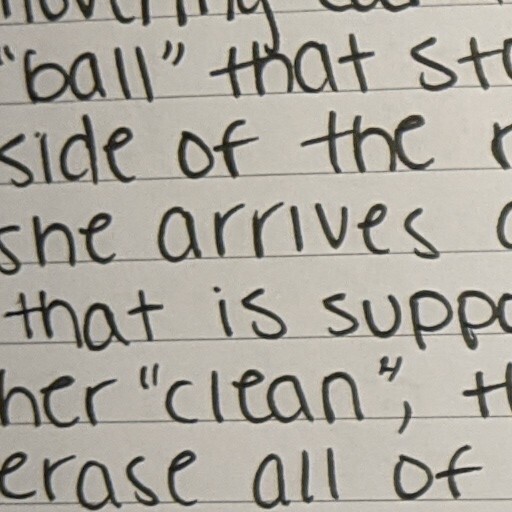 "ball" that sto
side of the r
she arrives
that is suppo
her "clean", th
erase all of